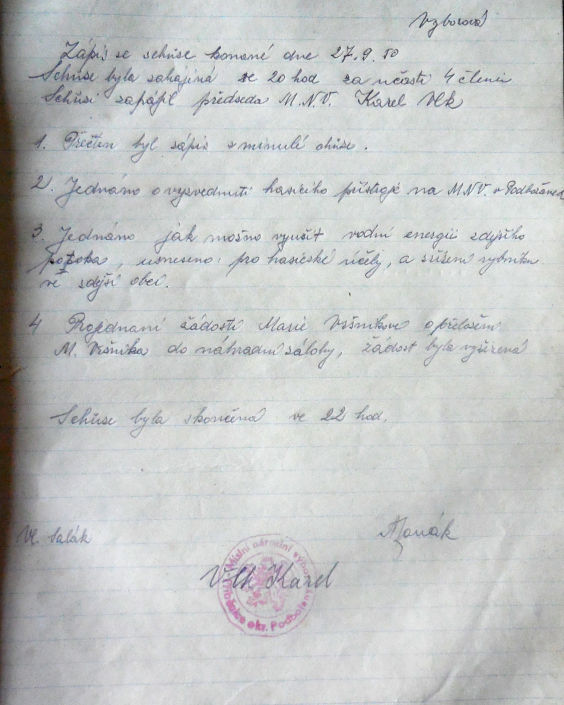 Výborová
Zápis se schůse konané dne 27.9.50
Schůse byla zahájená ve 20 hod za účasti 4 členů
Schůsi zapájil předseda M.N.V. Karel Vlk
1. Přečten byl zápis z minulé chůse.
2. Jednáno o vyzvednutí hasičího přístroje na M.N.V. v Podbořanech
3 Jednáno jak možno využít vodní energii zdejšího
potoka, usneseno: pro hasičské účely, a zřízení rybníku
ve zdejší obci.
4 Projednaní žádostí Marie Vršníkove o přeložení
M. Vršníka do náhradní zálohy, žádost byla vyřízená
Schůse byla skončená ve 22 hod.
Vl. Salák
Vlk Karel
Místní národní výbor
okr. Podbořany